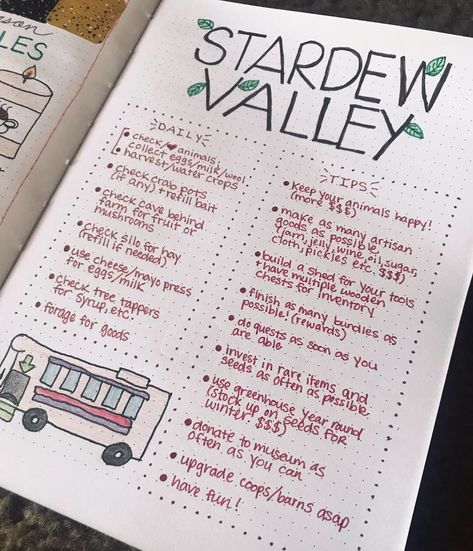 son
LES
STARDEW
VALLEY
DAILY
• check/♥ animals
collect eggs/milk/wool
harvest/water crops
• check crab pots
(if any) + refill bait
• check cave behind
farm for fruit or
mushrooms
• check silo for hay
(refill if needed)
• use cheese/mayo press
for eggs/milk
• check tree tappers
for syrup, etc
• forage for goods
TIPS
• keep your animals happy!
(more $$$)
• make as many artisan
goods as possible
(jam, jelly, wine, oil, sugar,
cloth, pickles etc. $$$)
• build a shed for your tools
+ have multiple wooden
chests for inventory
• finish as many bundles as
possible! (rewards)
• do quests as soon as you
are able
• invest in rare items and
seeds as often as possible
• use greenhouse year round
(stock up on seeds for
winter $$$)
• donate to museum as
often as you can
• upgrade coops/barns asap
• have fun!